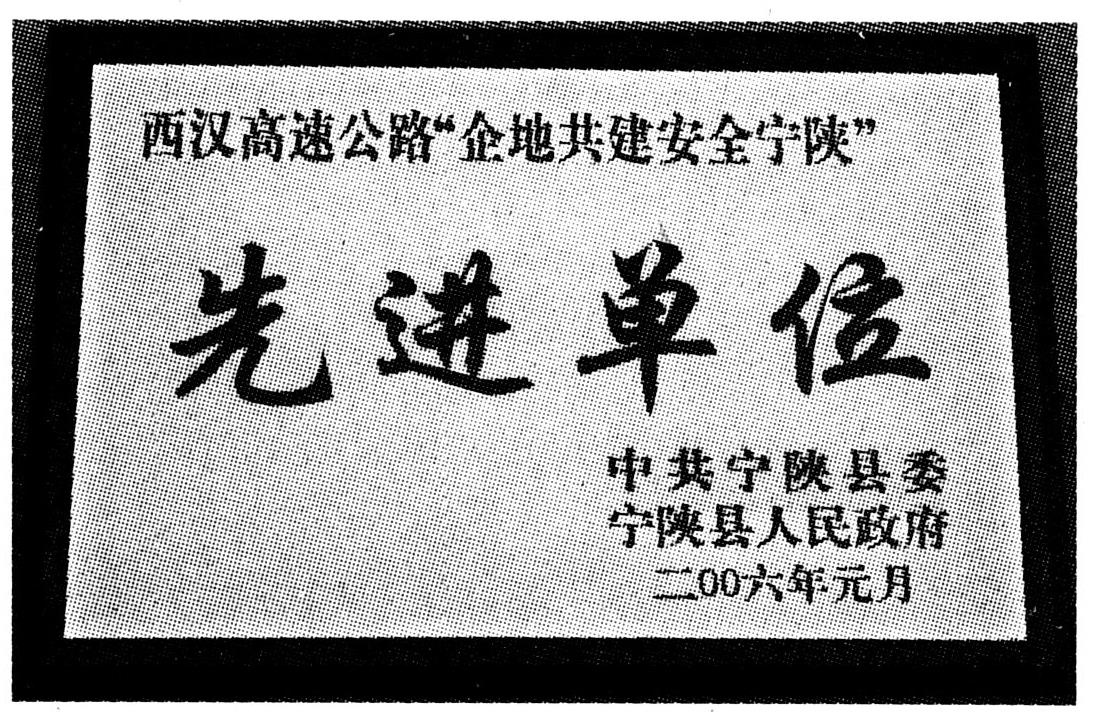 西汉高速公路“企地共建安全宁陕”
先进单位
中共宁陕县委
宁陕县人民政府
二00六年元月